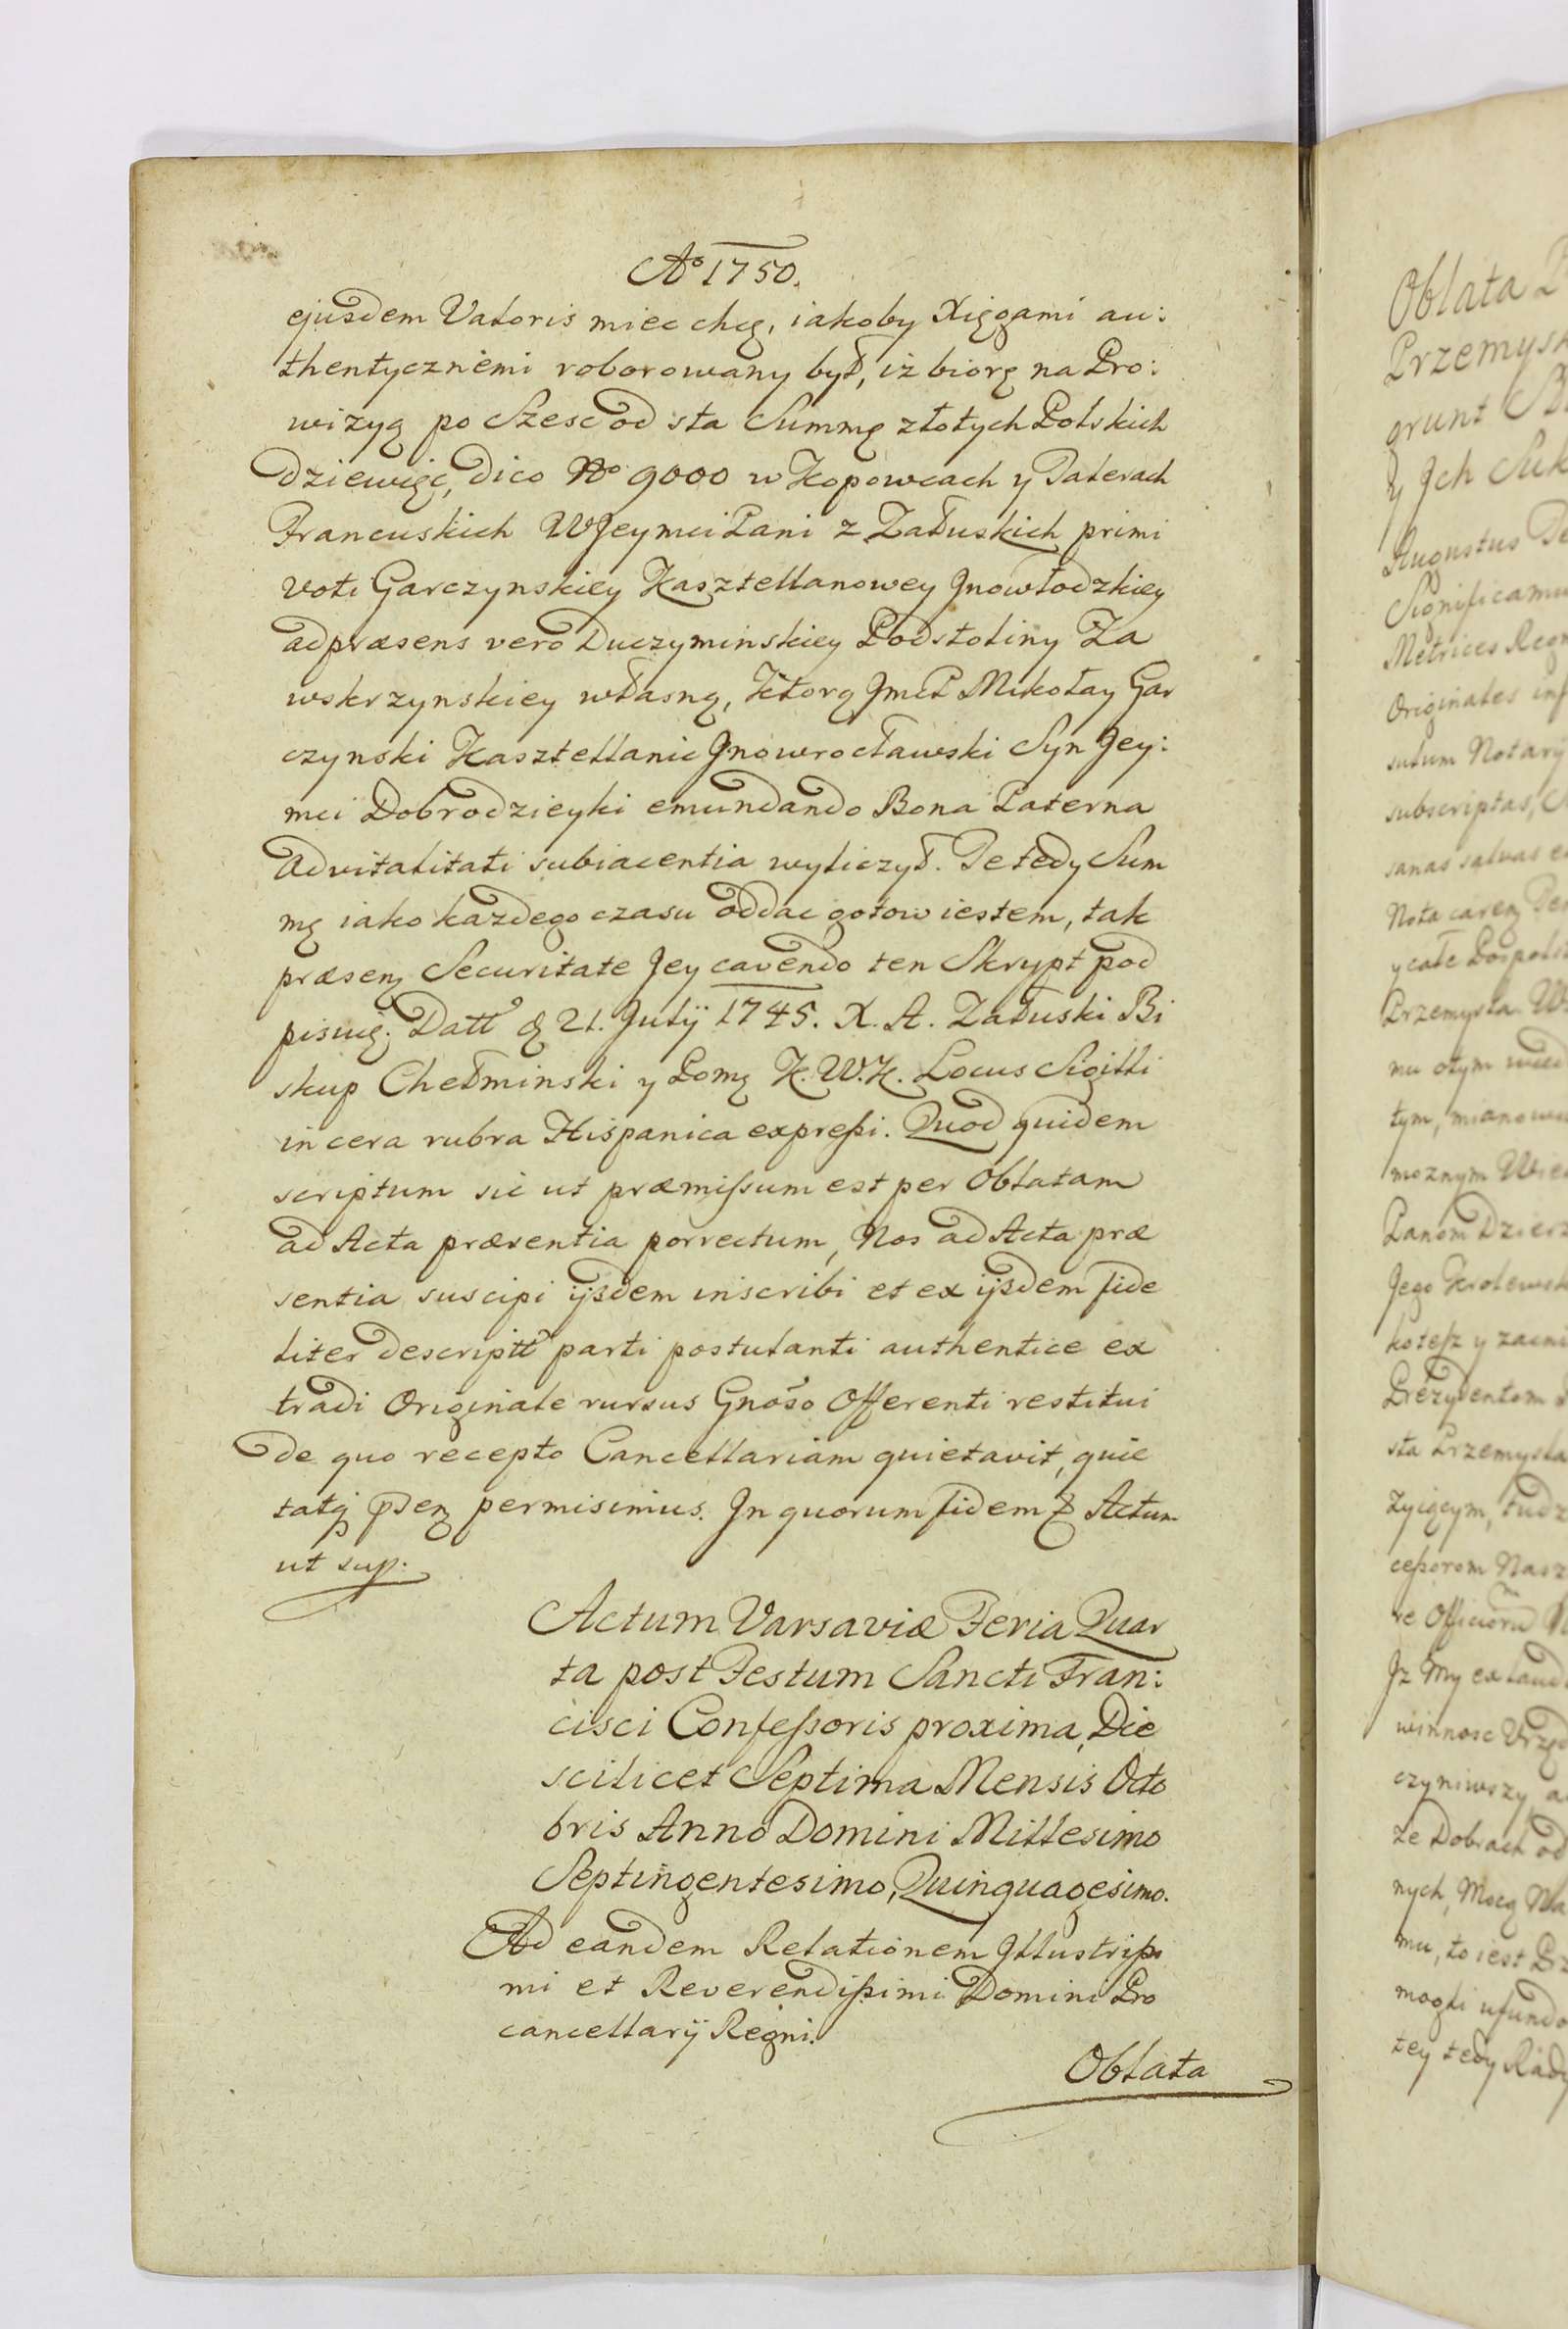 Aº 1750.
ejusdem Valoris miec chcę, iakoby Xięgami au:
thentyczniemi roborowany był, iż biorę na Pro:
wizyą po Szesc od sta Summę złotych Polskich
dziewięc, dico Nº 9000 w Kopowcach y Talerach
Francuskich WJeymci Pani z Załuskich primi
voti Garczynskiey Kasztellanowey Jnowłodzkiey
ad præsens vero Duczyminskiey Podstoliny Za
wskrzynskiey własną, Ktorą JmcP Mikołay Gar
czynski Kasztellanic Jnowrocławski Syn Jey:
mci Dobrodzieyki emundando Bona Paterna
Advitalitati subiacentia wyliczył. Te tedy Sum
mę iako każdego czasu oddac gotow iestem, tak
præsenz Securitate Jey cavendo ten Skrypt pod
pisuię. Datt d 21. Julÿ 1745. X. A. Załuski Bi
skup Chełminski y Pomę K. W. K. Locus Sigilli
in cera rubra Hispanica expreßi. Quod quidem
scriptum sic ut præmißum est per Oblatam
ad Acta præsentia porrectum, Nos ad Acta præ
sentia suscipi ijsdem inscribi et ex ijsdem fide
liter descriptt parti postulanti authentice ex
tradi Originale rursus Gnoso Offerenti restitui
de quo recepto Cancellariam quietavit, quie
tatq pdenz permisimus. Jn quorum fidem & Actum
ut sup.
Actum Varsaviæ Feria Quar
ta post Festum Sancti Fran:
cisci Confeßoris proxima, Die
scilicet Septima Mensis Octo
bris Anno Domini Millesimo
Septingentesimo, Quinquagesimo.
Ad eandem Relationem Jllustriß
mi et Reverendißimi Domini Pro
cancellarij Regni.
Oblata
Oblata
Przemysk
grunt
y Jch Suk
Augustus
Significamu
Metrices Regn
Originales inf
sutum Notarÿ
subscriptas,
sanas salvas e
Nota carenz
y całe Pospolit
Przemysla
mu otym wied
tym, mianowi
moznym Wiel
Panom Dzierz
Jego Krolewsk
koteß y zacni
Prezydentom
sta Przemysla
Zyięcym, tudz
ceßorom Nasz
re Officiorū
Jz My ex laud
winnosc Urzęd
czyniwszy, a
ze Dobrach od
nych, Mocą Na
mu, to iest Prz
mogli ufundo
tey tedy Rady